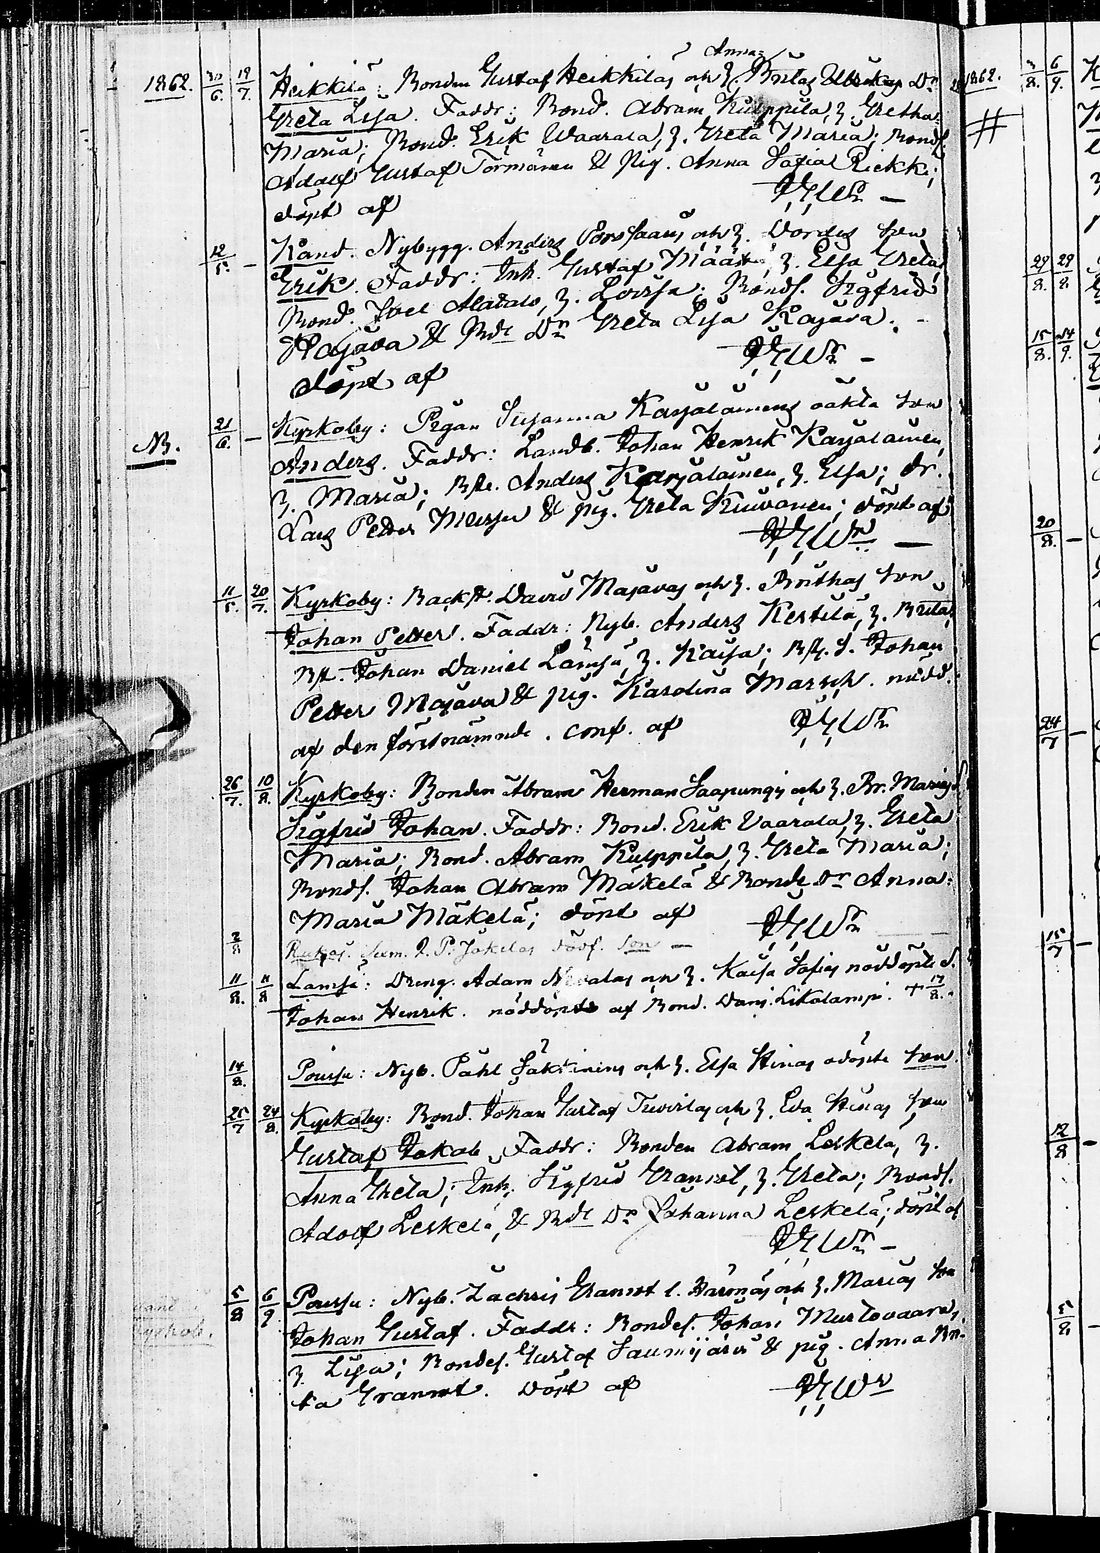 1862. 30/6. 19/7. Heikkilä: Bonden Gustaf Heikkiläs och h. Anna Britas Ulrikas Dr
Greta Lisa. Faddr: Bond. Abram Kulppila, h. Gretha
Maria; Bond. Erik Waarala, h. Greta Maria; Bonds.
Adolf Gustaf Törmänen & pig. Anna Sofia Riekki;
döpt af
12/5 – Rand. Nybygg. Anders och h. Son
Erik. Faddr: Inh. Gustaf Määttä, h. Elsa Greta,
Bond. Joel Alatalo, h. Lovisa; Bonds. Sigfrid
Kajava & Bdr Dr Greta Lisa Kajava.
döpt af
NB. 21/6. – Kyrkoby: Pigan Susanna Karjalainens oäkta Son
Anders. Faddr: Landb. Johan Henrik Karjalainen,
h. Maria; Anders Karjalainen, h. Elsa; dr.
Lars Petter & pig. Greta Kuivanen; döpt af
11/5. 20/7. Kyrkoby: Backst. David Majavas och h. Brithas Son
Johan Petter. Faddr: Nyb. Anders Kerttilä, h. Brita,
Bst. Johan Daniel Lämsä, h. Kaisa; Bst. S. Johan
Petter Majava & pig. Karolina Marsch. nöddöpt
af den förstnämnde. conf. af
26/7. 10/8. Kyrkoby: Bonden Abram Herman Saapungis och h. Br. Marias S.
Sigfrid Johan. Faddr: Bond. Erik Vaarala, h. Greta
Maria; Bond. Abram Kulppila, h. Greta Maria;
Bonds. Johan Abram Mäkelä & Bonde Dr Anna
Maria Mäkelä; döpt af
2/8 J. P. Jäkeläs dödf. son –
11/8. 11/8 Lämsä: Dreng. Adam Nevalas och h. Kaisa Sofias nöddöpte S.
Johan Henrik. nöddöpt af Bond. Dani. Likolampi. + 17/8.
14/8. Pousu: Nyb. Påhl och h. Elsa Stinas odöpte son.
25/7 24/8. Kyrkoby: Bond. Johan Gustaf och h. Eva Stinas Son
Gustaf Jakob. Faddr: Bonden Abram Leskelä, h.
Anna Greta; Inh. Sigfrid Granroth, h. Greta; Bonds.
Adolf Leskelä, & Bdr Dr Johanna Leskelä; döpt af
5/8 6/9 Pousu: Nyb. Zachris Granrot l. Härmäs och h. Marias Son
Johan Gustaf. Faddr: Bondes. Johan Mustovaara,
h. Lisa; Bondes. Gustaf Saunijärvi & pig. Anna Bri-
ta Granrot. döpt af
1862.
#
3/8. 6/9.
29/8. 29/8
15/8. 24/9.
20/8. –
24/7 –
15/7 –
12/8 –
5/8 –